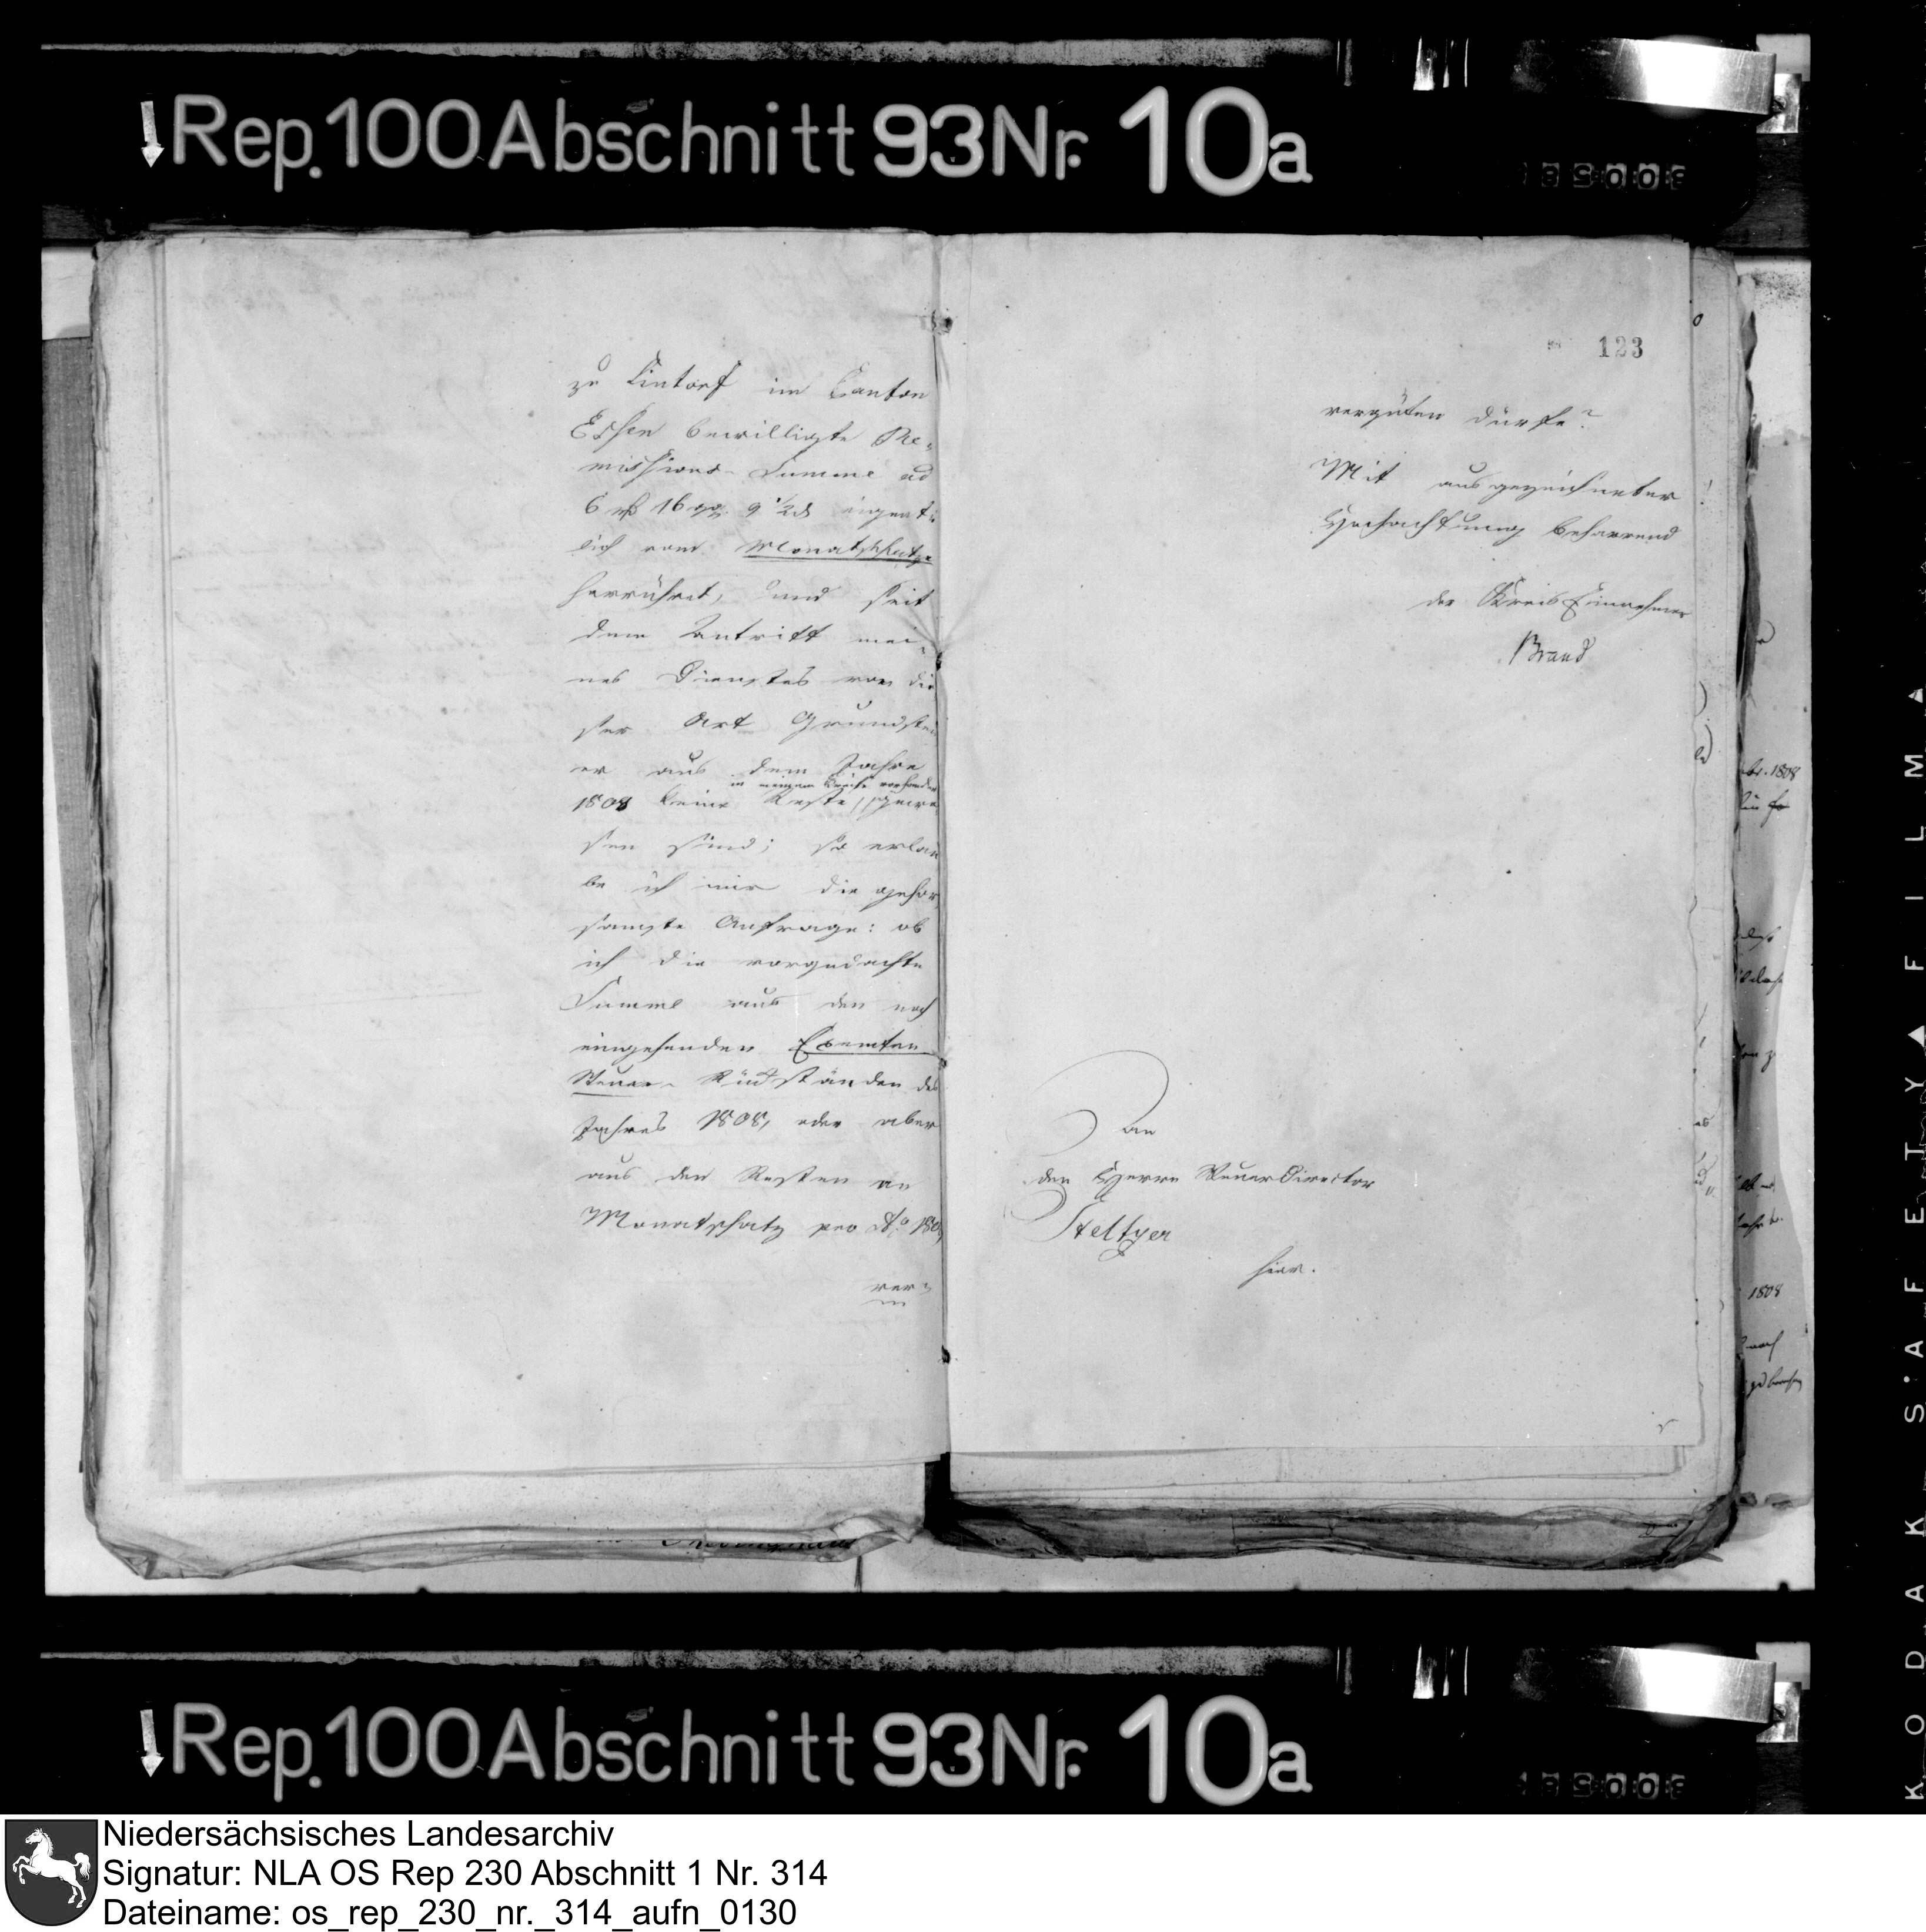 Rep. 100 Abschnitt 93 Nr. 10a
zu Lintorf im Canton
Essen bewilligte Re-
missions-Summe ad
6 rß 16 gg. 9 1/2 d eigent-
lich vom Monatschatze
herrühret, und seit
dem Antritt mei-
nes Dienstes von die
ser Art Grundsteu
er aus dem Jahre
in meinem Kreise vorhanden
1808 keine Reste gewe
sen sind; so erlau
be ich mir die gehor
samste Anfrage: ob
ich die vorgedachte
Summe aus den noch
eingehenden Exemten
Steuer-Rückständen des
Jahres 1808, oder aber
aus den Resten an
Monatschatz pro Ao 180
ver-
123
vergüten dürfe?
Mit ausgezeichneter
Hochachtung beharrend
der Kreis Einnehmer
Brand
An
den Herrn Steuer Director
Steltzer
hier.
br. 1808
1808
KODAK SAFETY FILM
Rep. 100 Abschnitt 93 Nr. 10a
Niedersächsisches Landesarchiv
Signatur: NLA OS Rep 230 Abschnitt 1 Nr. 314
Dateiname: os_rep_230_nr._314_aufn_0130